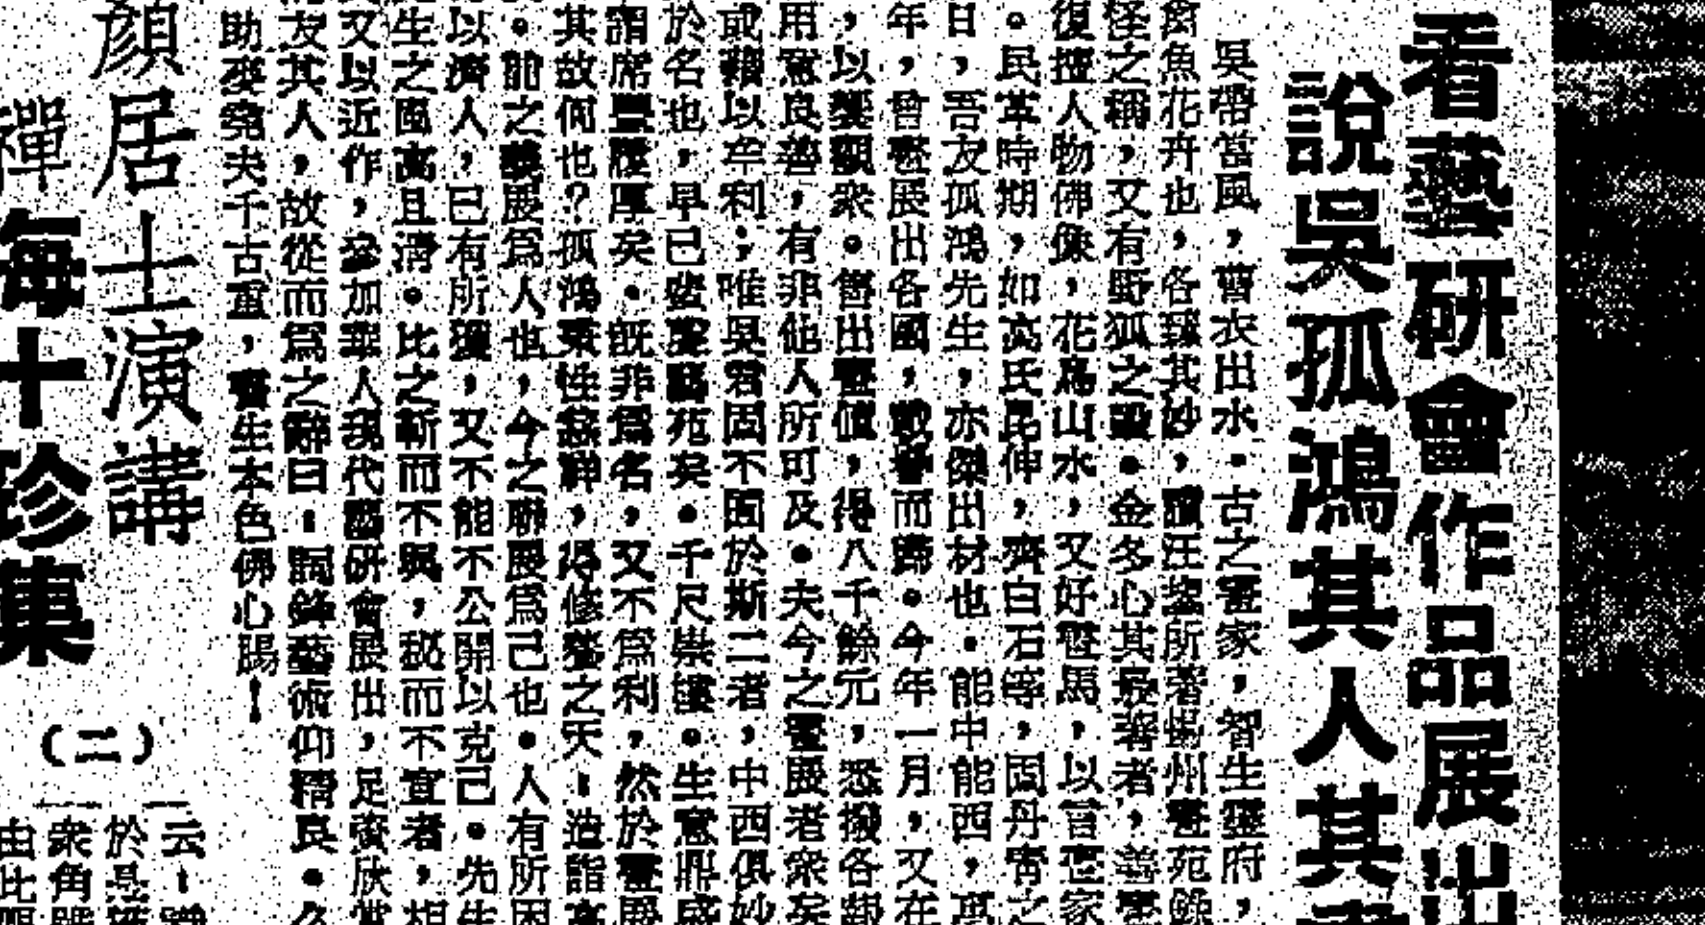 看藝研會作品展出
說吳孤鴻其人其畫
吳帶當風，曹衣出水．古之畫家，智生靈府，
禽魚花卉也，各臻其妙，讀汪鋆所著揚州畫苑錄
怪之稱，又有野狐之譏．金冬心其最著者，善畫
復擅人物佛像，花鳥山水，又好畫馬，以言畫家
。民革時期，如高氏昆仲，齊白石等，固丹青之
日，吾友孤鴻先生，亦傑出材也．能中能西，
年，曾畫展出各國，載譽而歸．今年一月，又在
，以饗觀衆．售出畫值，得八千餘元，悉撥各
用意良善，有非他人所可及．夫今之畫展者衆矣
或藉以牟利；唯吳君固不囿於斯二者，中西俱妙
於名也，早已蜚聲藝苑矣．千尺崇樓．生意鼎盛
謂席豐履厚矣．旣非爲名，又不爲利，然於畫展
其故何也？孤鴻秉性慈祥，得修養之天，造詣高
．能之義展爲人也，今之聯展爲己也．人有所困
以濟人，已有所獲，又不能不公開以克己．先生
生之風高且淸．比之靳而不與，秘而不宣者，相
又以近作，參加華人現代藝研會展出，足資欣賞
友其人，故從而爲之辭曰：闊綽藝術仰精良．久
助愛堯夫千古重，畫生本色佛心腸！
顏居士演講
禪海十珍集
（二）
云
於是
衆角
由此